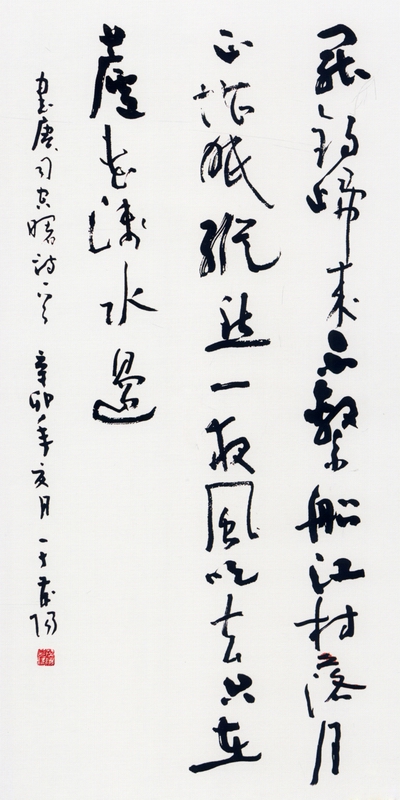 罷钓歸来不繫船江村落月
正堪眠縱然一夜風吹去只在
蘆花淺水邊
書唐司空曙诗一首 辛卯年亥月于莆陽